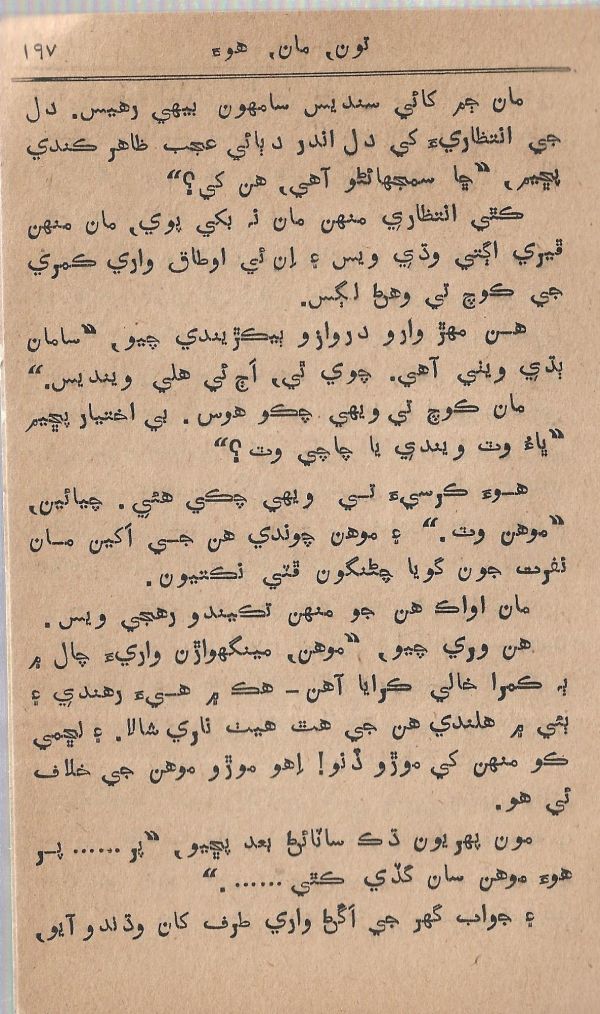 تون، مان، هوءَ ١٩٧
مان ڄم کائي سنديس سامهون بيهي رهيس. دل
جي انتظاريءَ کي دل اندر دٻائي عجب ظاهر ڪندي
پڇيم، ”ڇا سمجهائڻو آهي، هن کي؟“
ڪٿي انتظاري منهن مان نہ بکي پوي، مان منهن
ڦيري اڳتي وڌي ويس ۽ اِن ئي اوطاق واري ڪمري
جي ڪوچ تي وهڻ لڳس.
هن مهڙ وارو دروازو ٻيڪڙيندي چيو، ”سامان
ٻڌي ويٺي آهي. چوي ٿي، اَڄ ئي هلي وينديس.“
مان ڪوچ تي ويهي چڪو هوس. بي اختيار پڇيم
”ڀاءُ وٽ ويندي يا چاچي وٽ؟“
هوءَ ڪرسيءَ تي ويهي چڪي هئي. چيائين،
”موهن وٽ.“ ۽ موهن چوندي هن جي اَکين مان
نفرت جون گويا چڻنگون ڦٽي نڪتيون.
مان اواڪ هن جو منهن تڪيندو رهجي ويس.
هن وري چيو، ”موهن، مينگهواڙن واريءَ چال ۾
ٻہ ڪمرا خالي ڪرايا آهن - هڪ ۾ هيءَ رهندي ۽
ٻئي ۾ هلندي هن جي هٿ هيٺ ناري شالا. ۽ لڇمي
ڪو منهن کي موڙو ڏنو! اِهو موڙو موهن جي خلاف
ئي هو.
مون پهريون ڌڪ سانڍڻ بعد پڇيو، ”پر ...... پر
هوءَ موهن سان گڏي ڪٿي .......“
۽ جواب گهر جي اَڱڻ واري طرف کان وڌندو آيو،